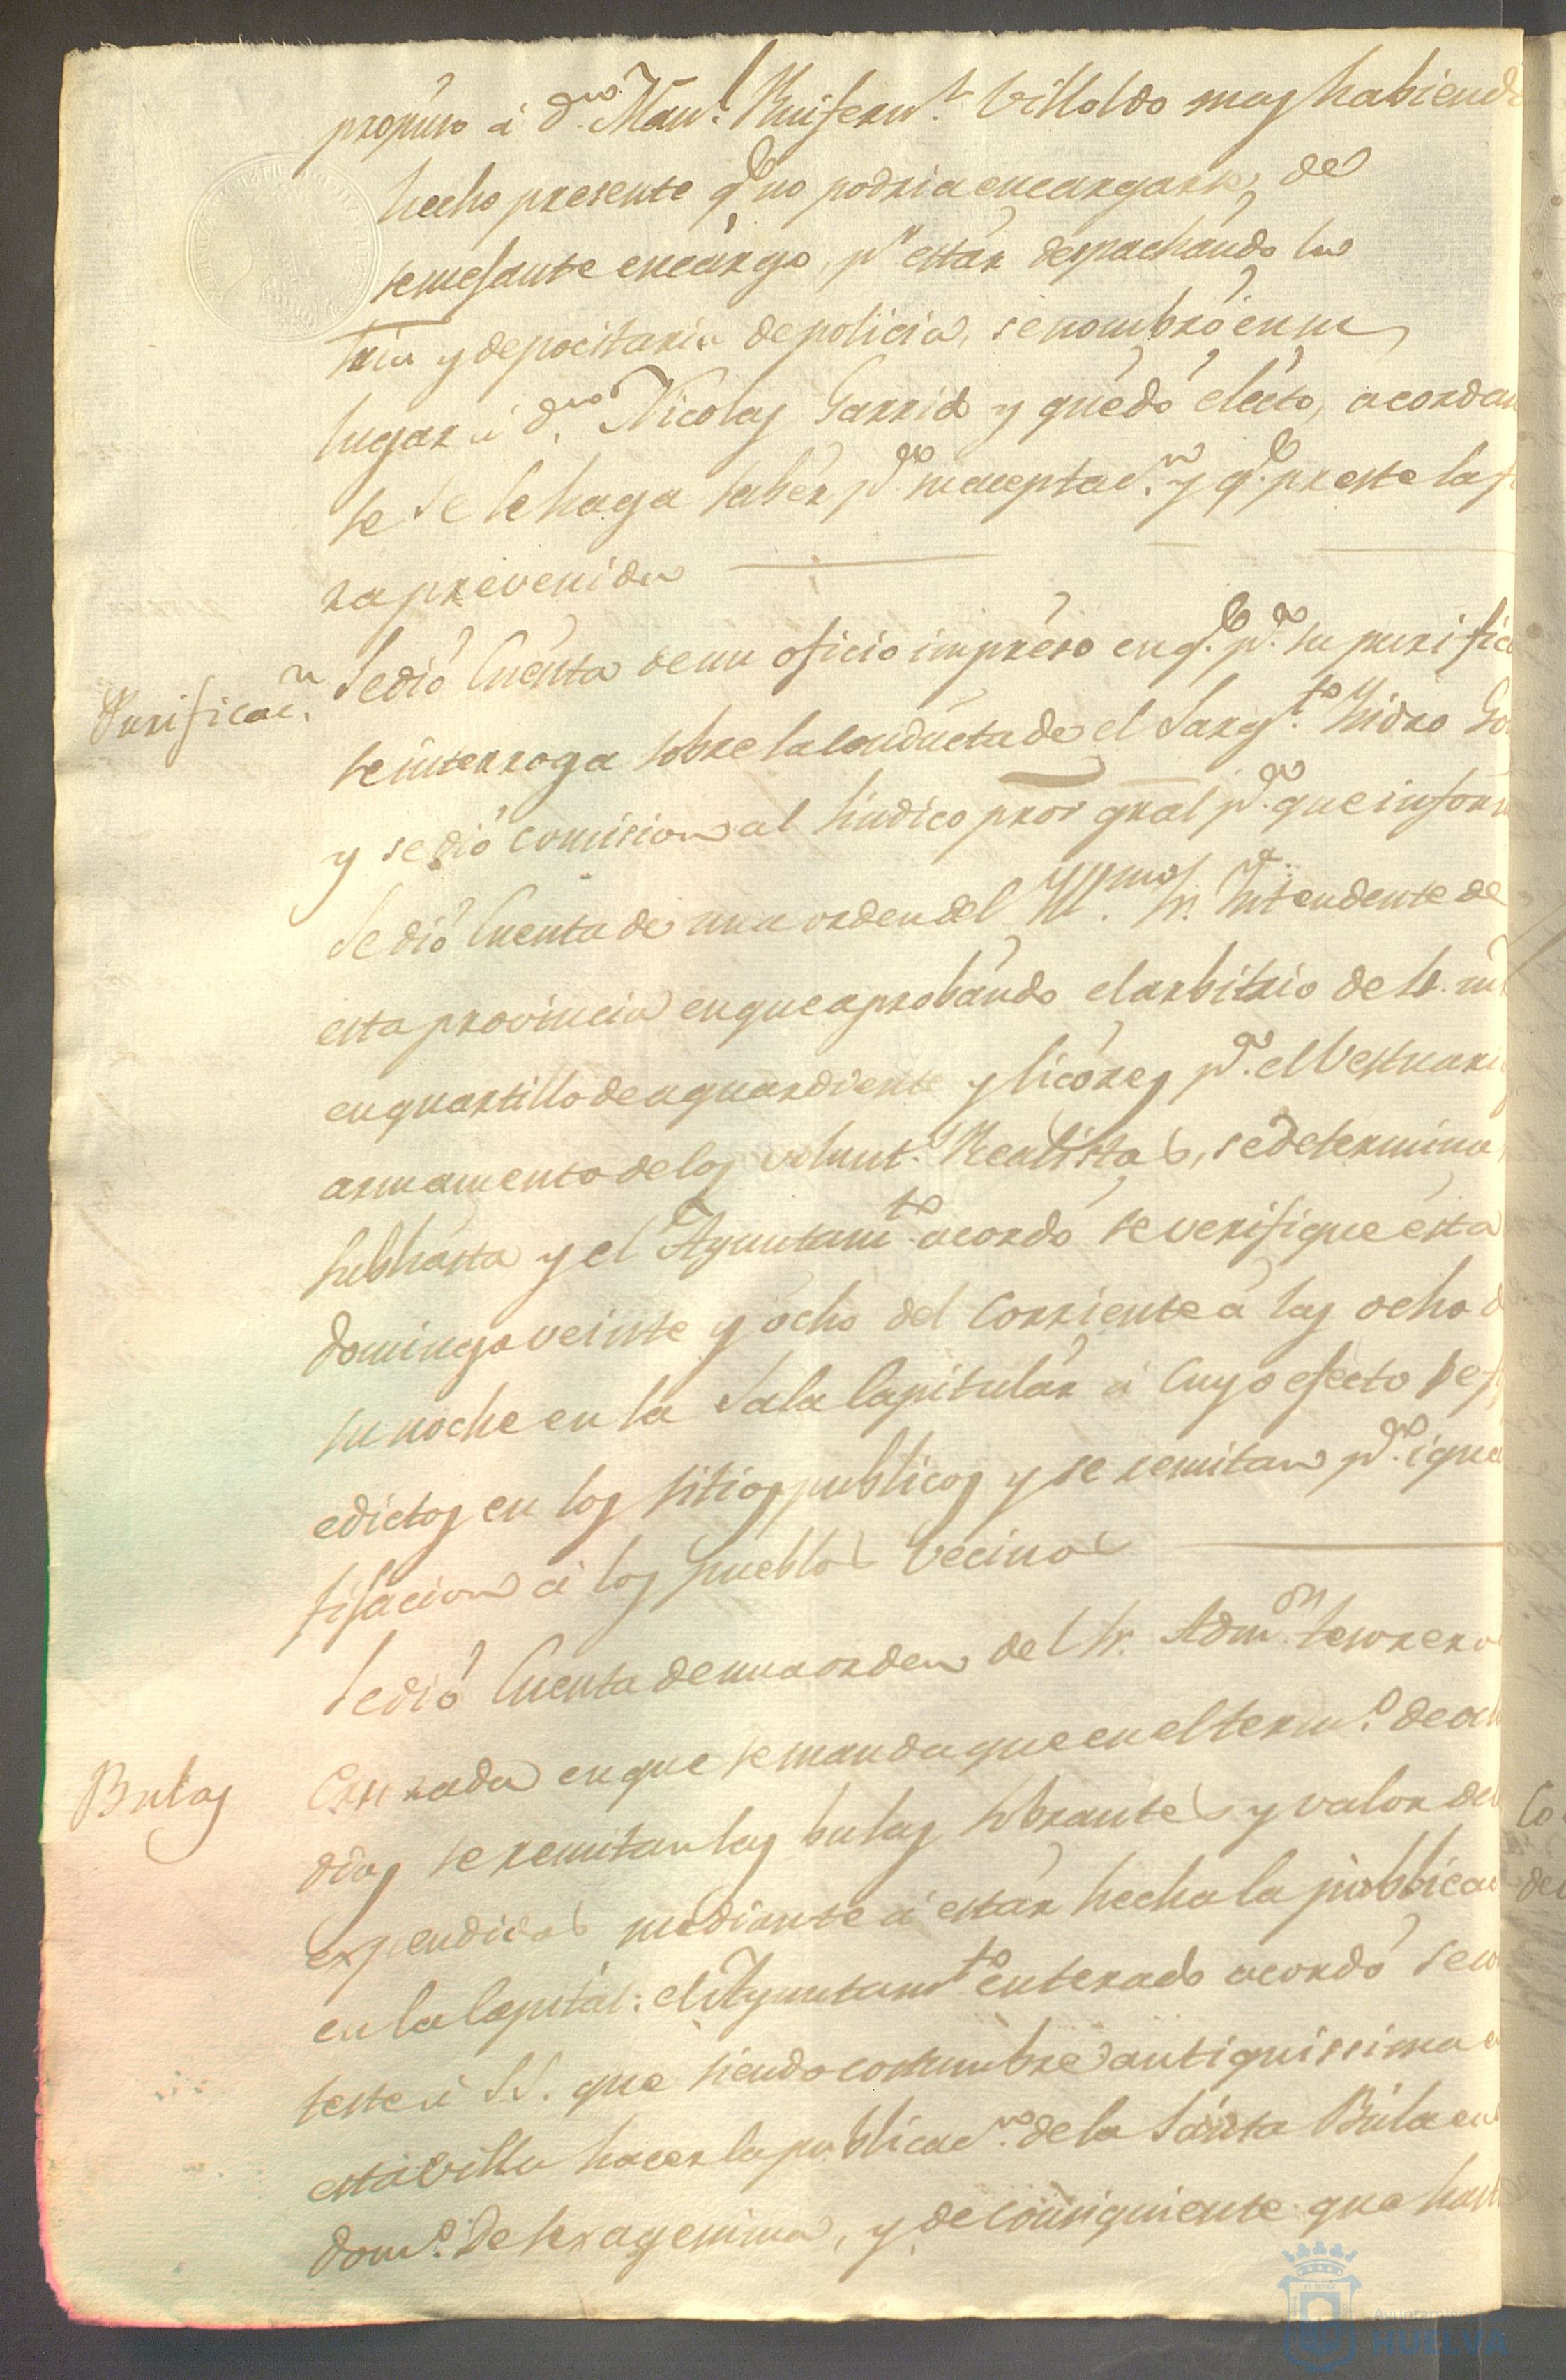 propuso á d.n Man.l Villoldo mas habiendo
hecho presente q.e no podria encargarse de
semejante encárgo, p.r estár despachándo la
tria y depocitaria de policia, se nombró en su
lugar á d.n Nicolas Garrido y quedó elécto, acordan
se se le haga sabér p.a su aceptac.n y q.e preste la fi
za prevenida
Purificac.n
Se dió Cuenta de un oficio imprèso en q.e p.a su purifica
se interroga sobre la conducta de el Sarg.to Ysidro Go
y se dió comision al Sindico pror gral p.a que inform
Se dió Cuenta de una orden del Yll.mo Sr. Intendente de
esta provincia en que aprobándo el arbitrio de
en quartillo de aguardiente y licóres p.a el Vestuari
armamento de los volunt.s Realistas, se determina
subhásta y el Ayuntam.to acordó se verifique ésta
domingo veinte y ócho del Corriente á las ocho d
su noche en la Sala Capitulár á Cuyo efecto se f
edictos en los sitios publicos y se remitan p.a igua
fijacion á los pueblos Vecinos
Se dió Cuenta de una orden del Sr. Adm.or tesorero
Bulas
Cruzada en que se manda que en el term.o de och
dias se remitan las bulas sobrantes y valor de
expendidas mediante á estár hecha la publicac
en la Capitál: el Ayuntam.to enterado acordó se con
teste á S.S. que siendo costumbre antiquissima e
esta villa hacer la publicac.n de la Santa Bula en
dom.o de sexagesima, y de consiguiente que hast
Co
de
Ayuntamiento
HUELVA